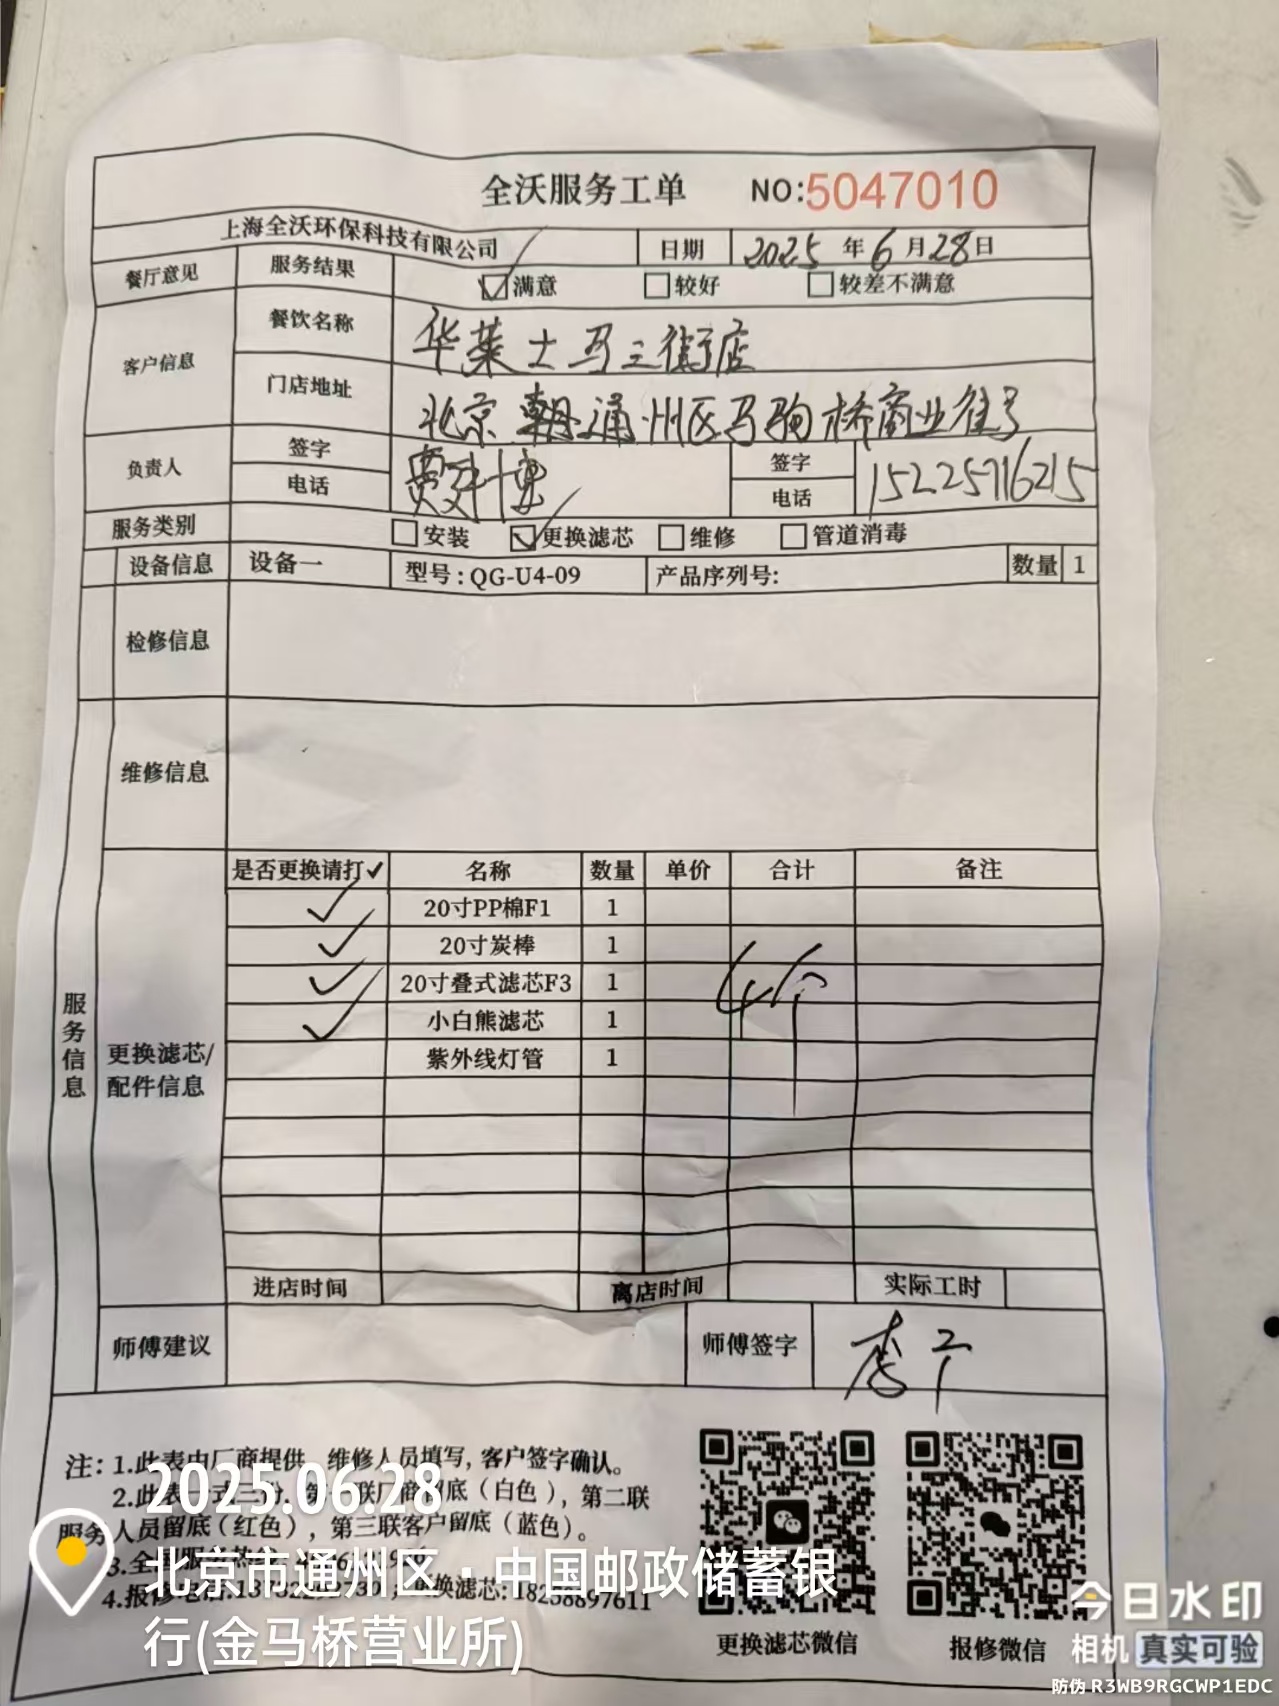 全沃服务工单 NO:5047010
上海全沃环保科技有限公司 日期 2025 年 6 月 28 日
餐厅意见 服务结果 满意 较好 较差不满意
客户信息 餐饮名称 华莱士马三街店
门店地址 北京 通州区马驹桥商业街3号
负责人 签字 电话 签字 电话 15225716215
服务类别 安装 更换滤芯 维修 管道消毒
设备信息 设备一 型号:QG-U4-09 产品序列号: 数量 1
检修信息
维修信息
服务信息
更换滤芯/配件信息
是否更换请打✓ 名称 数量 单价 合计 备注
✓ 20寸PP棉F1 1
✓ 20寸炭棒 1
✓ 20寸叠式滤芯F3 1
✓ 小白熊滤芯 1
紫外线灯管 1
4个
进店时间 离店时间 实际工时
师傅建议 师傅签字 李
注:1.此表由厂商提供,维修人员填写,客户签字确认。
2.此表一式三份,第一联厂商留底(白色),第二联
服务人员留底(红色),第三联客户留底(蓝色)。
3.全
4.报修电话: 更换滤芯:18258897611
更换滤芯微信 报修微信
2025.06.28
北京市通州区·中国邮政储蓄银
行(金马桥营业所)
今日水印
相机 真实可验
防伪 R3WB9RGCWP1EDC